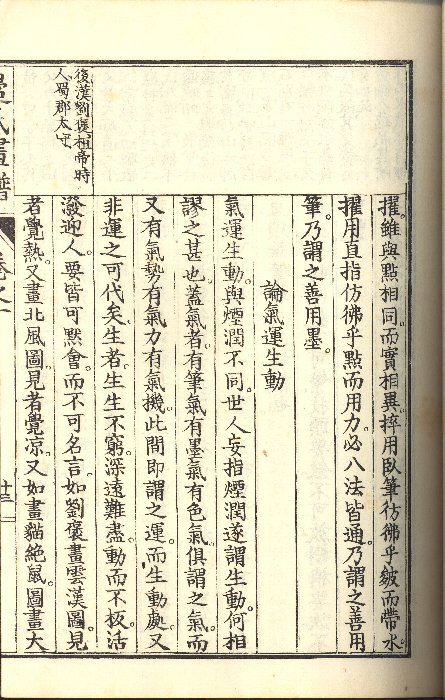 擢雖與點相同。而實相異。捽用臥筆彷彿乎皴而帶水。
擢用直指仿彿乎點而用力。必八法皆通。乃謂之善用
筆。乃謂之善用墨。
論氣運生動
氣運生動。與煙潤不同。世人妄指煙潤。遂謂生動。何相
謬之甚也。蓋氣者。有筆氣。有墨氣。有色氣。俱謂之氣。而
又有氣勢。有氣力。有氣機。此間即謂之運。而生動處。又
非運之可代矣。生者。生生不窮。深遠難盡。動而不板。活
潑迎人。要皆可默會。而不可名言。如劉褒畫雲漢圖。見
者覺熱。又畫北風圖。見者覺凉。又如畫貓絕鼠。圖畫大
後漢劉褒桓帝時
人蜀郡太守
畫譜
卷之一
十三